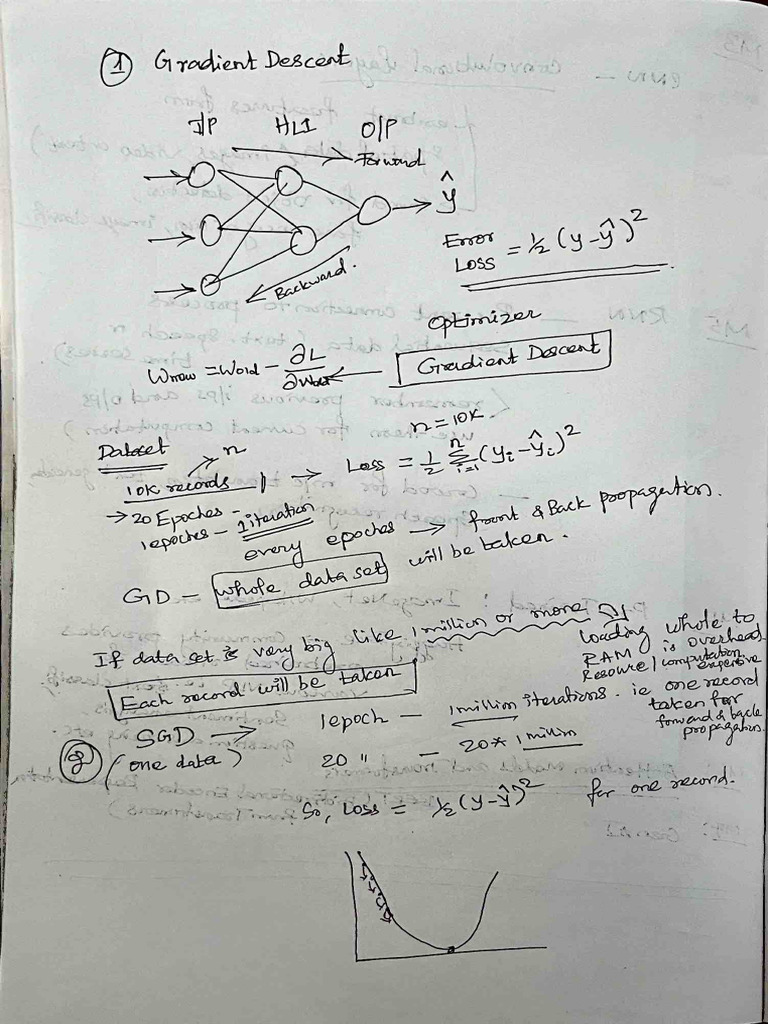 ① Gradient Descent
I/P HL1 O/P
Forward
ŷ
Backward.
Error
Loss = 1/2 (y-ŷ)²
optimizer
Gradient Descent
Wnew = Wold - ∂L/∂Wold
n=10K.
Dataset
n
10K records → Loss = 1/2 Σ_{i=1}^{n} (yi-ŷi)²
→ 20 Epoches -
1epoches - 1iteration
every epoches → front & Back propagation.
GD - whole data set will be taken.
If data set is very big like 1million or more
loading whole to
RAM is overhead
Resource/computation
expensive
Each record will be taken
② SGD → 1epoch - 1million iterations. ie one record
taken for
forward & back
propagation.
(one data) 20 " - 20* 1million
So, Loss = 1/2 (y-ŷ)² for one record.